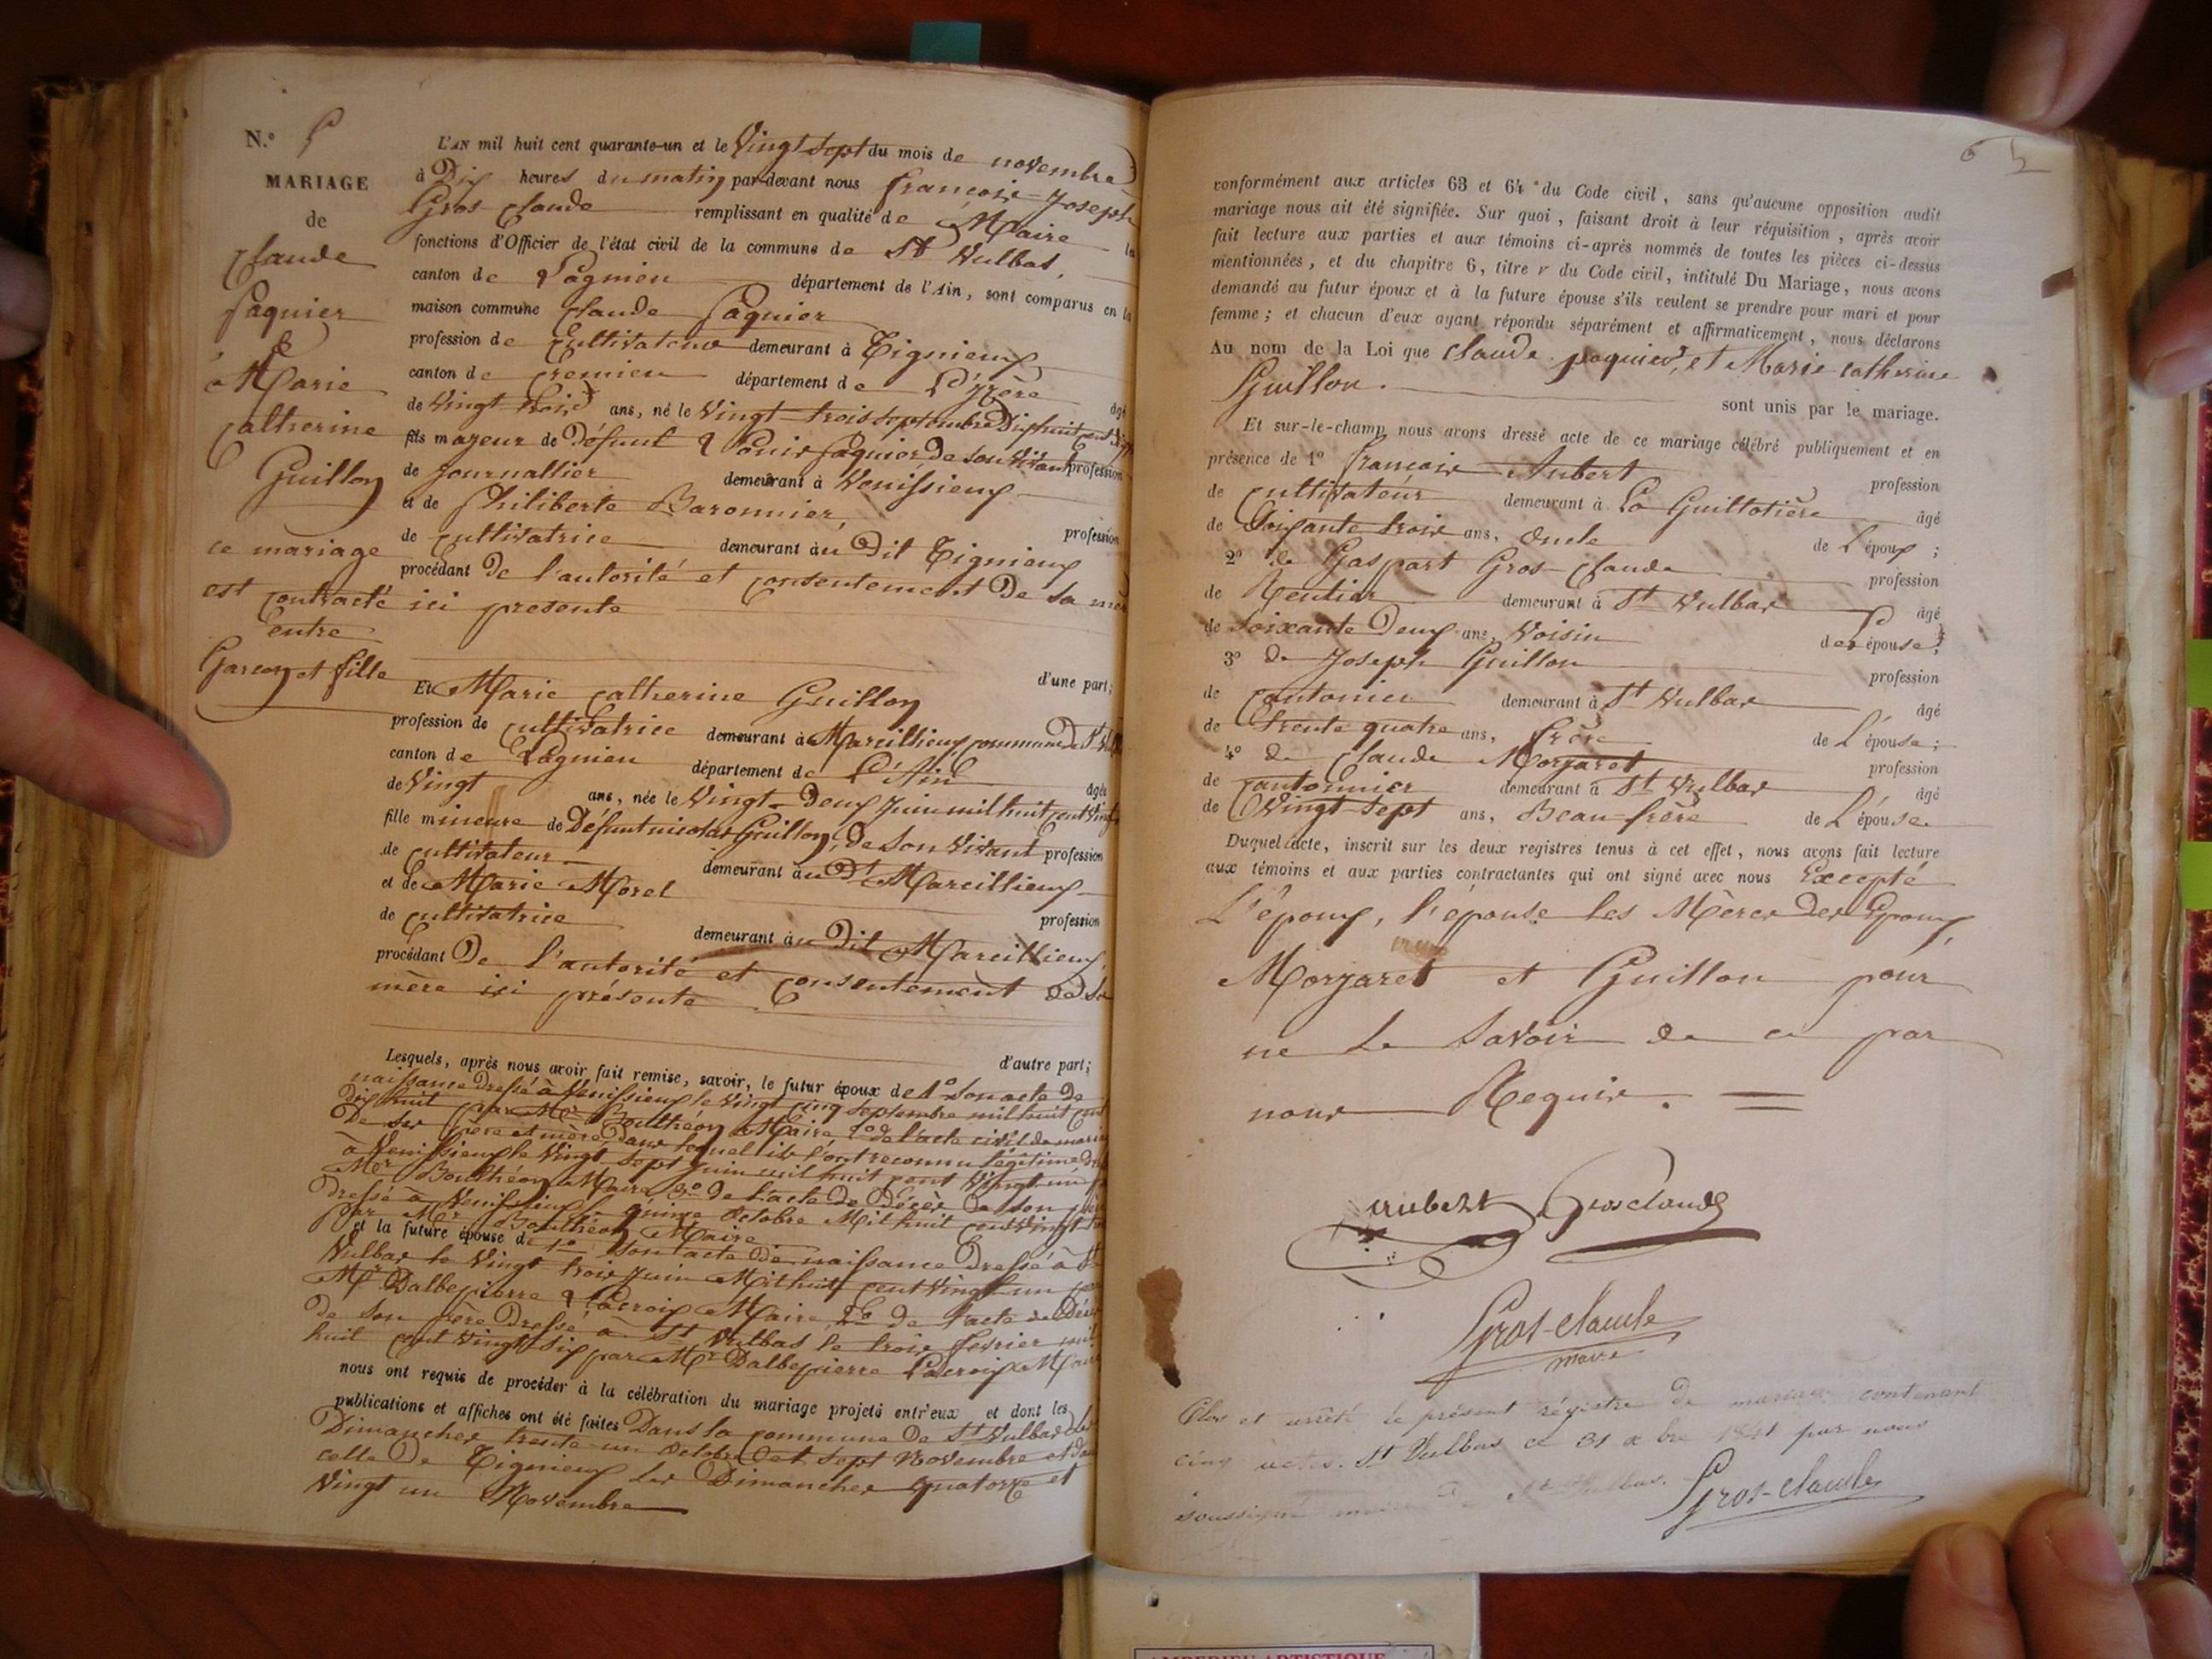 N.º 5
MARIAGE
de
Claude
Paquier
&
Marie
Catherine
Guillon
ce mariage
est contracté
entre
Garçon et fille
L'AN mil huit cent quarante-un et le Vingt sept du mois de novembre
à Dix heures du matin par-devant nous françois-Joseph
Gros-Claude remplissant en qualité de Maire les
fonctions d'Officier de l'état civil de la commune de St Vulbas,
canton de Lagnieu département de l'Ain, sont comparus en la
maison commune Claude Paquier
profession de Cultivateur demeurant à Tignieux
canton de Cremieu département de L'Izère âgé
de Vingt trois ans, né le Vingt trois septembre Dix huit cent dix
fils majeur de Défunt Louis Paquier de son Vivant profession
de Journallier demeurant à Venissieux
et de Philiberte Baronnier,
profession
de Cultivatrice demeurant àu Dit Tignieux
procédant De l'autorité et Consentement De sa mère
ici presente
d'une part;
Et Marie Catherine Guillon
profession de Cultivatrice demeurant à Marcillieux commune de St
canton de Lagnieu département de L'Ain âgée
de Vingt ans, née le Vingt-Deux Juin mil huit cent Vingt
fille mineure de Défunt nicolas Guillon, de son Vivant profession
de Cultivateur demeurant àu Dt Marcillieux
et de Marie Morel
profession
de Cultivatrice demeurant àu Dit Marcillieux,
procédant De l'autorité et Consentement de sa
mère ici présente
d'autre part;
Lesquels, après nous avoir fait remise, savoir, le futur époux de 1º Son acte de
naissance Dressé à Venissieux le Vingt cinq septembre mil huit cent
Dix huit par Mr Bouthéon Maire 2º de l'acte civil de mariage
De ses père et mère, Dans lequel ils l'ont reconnu légitime Dressé
à Venissieux le Vingt sept Juin mil huit cent Vingt un par
Mr Bouthéon Maire, 3º De l'acte de Décès De son père
Dressé à Venissieux le quinze Octobre Mil huit cent Vingt
par Mr Bouthéon Maire
et la future épouse de 1º Son acte De naissance Dressé à St
Vulbas le Vingt trois Juin Mil huit cent Vingt un par
Mr Dalbepierre Lacroix Maire, 2º De l'acte de Décès
De son père Dressé à St Vulbas le trois février mil
huit cent Vingt six par Mr Dalbepierre Lacroix Maire
nous ont requis de procéder à la célébration du mariage projeté entr'eux et dont les
publications et affiches ont été faites Dans la Commune De St Vulbas les
Dimanches trente-un Octobre et sept Novembre et dans
celle De Tignieux les Dimanches quatorze et
Vingt un Novembre
conformément aux articles 63 et 64 du Code civil, sans qu'aucune opposition audit
mariage nous ait été signifiée. Sur quoi, faisant droit à leur réquisition, après avoir
fait lecture aux parties et aux témoins ci-après nommés de toutes les pièces ci-dessus
mentionnées, et du chapitre 6, titre v du Code civil, intitulé Du Mariage, nous avons
demandé au futur époux et à la future épouse s'ils veulent se prendre pour mari et pour
femme; et chacun d'eux ayant répondu séparément et affirmativement, nous déclarons
Au nom de la Loi que Claude paquier, et Marie Catherine
Guillon.
sont unis par le mariage.
Et sur-le-champ nous avons dressé acte de ce mariage célébré publiquement et en
présence de 1º françois Aubert
profession
de Cultivateur demeurant à La Guillotière âgé
de Soixante trois ans, Oncle de L'époux;
2º de Gaspart Gros-Claude
profession
de Rentier demeurant à St Vulbas âgé
de Soixante Deux ans, Voisin des épouse;
3º de Joseph Guillon
profession
de Cantonier demeurant à St Vulbas âgé
de trente quatre ans, frère de L'épouse;
4º de Claude Morgaret
profession
de Cantonnier demeurant à St Vulbas âgé
de Vingt-sept ans, Beau-frère de L'épouse.
Duquel acte, inscrit sur les deux registres tenus à cet effet, nous avons fait lecture
aux témoins et aux parties contractantes qui ont signé avec nous Excepté
L'époux, l'épouse les Mères des Epoux,
Morgaret et Guillon pour
ne le Savoir de ce par
nous Requis.
aubert Grosclaude
Gros-Claude
maire
Clos et arrêté le présent régistre de mariage contenant
cinq actes. St Vulbas ce 31 xbre 1841 par nous
soussigné maire de St Vulbas. Gros-Claude
AMBERIEU ARTISTIQUE